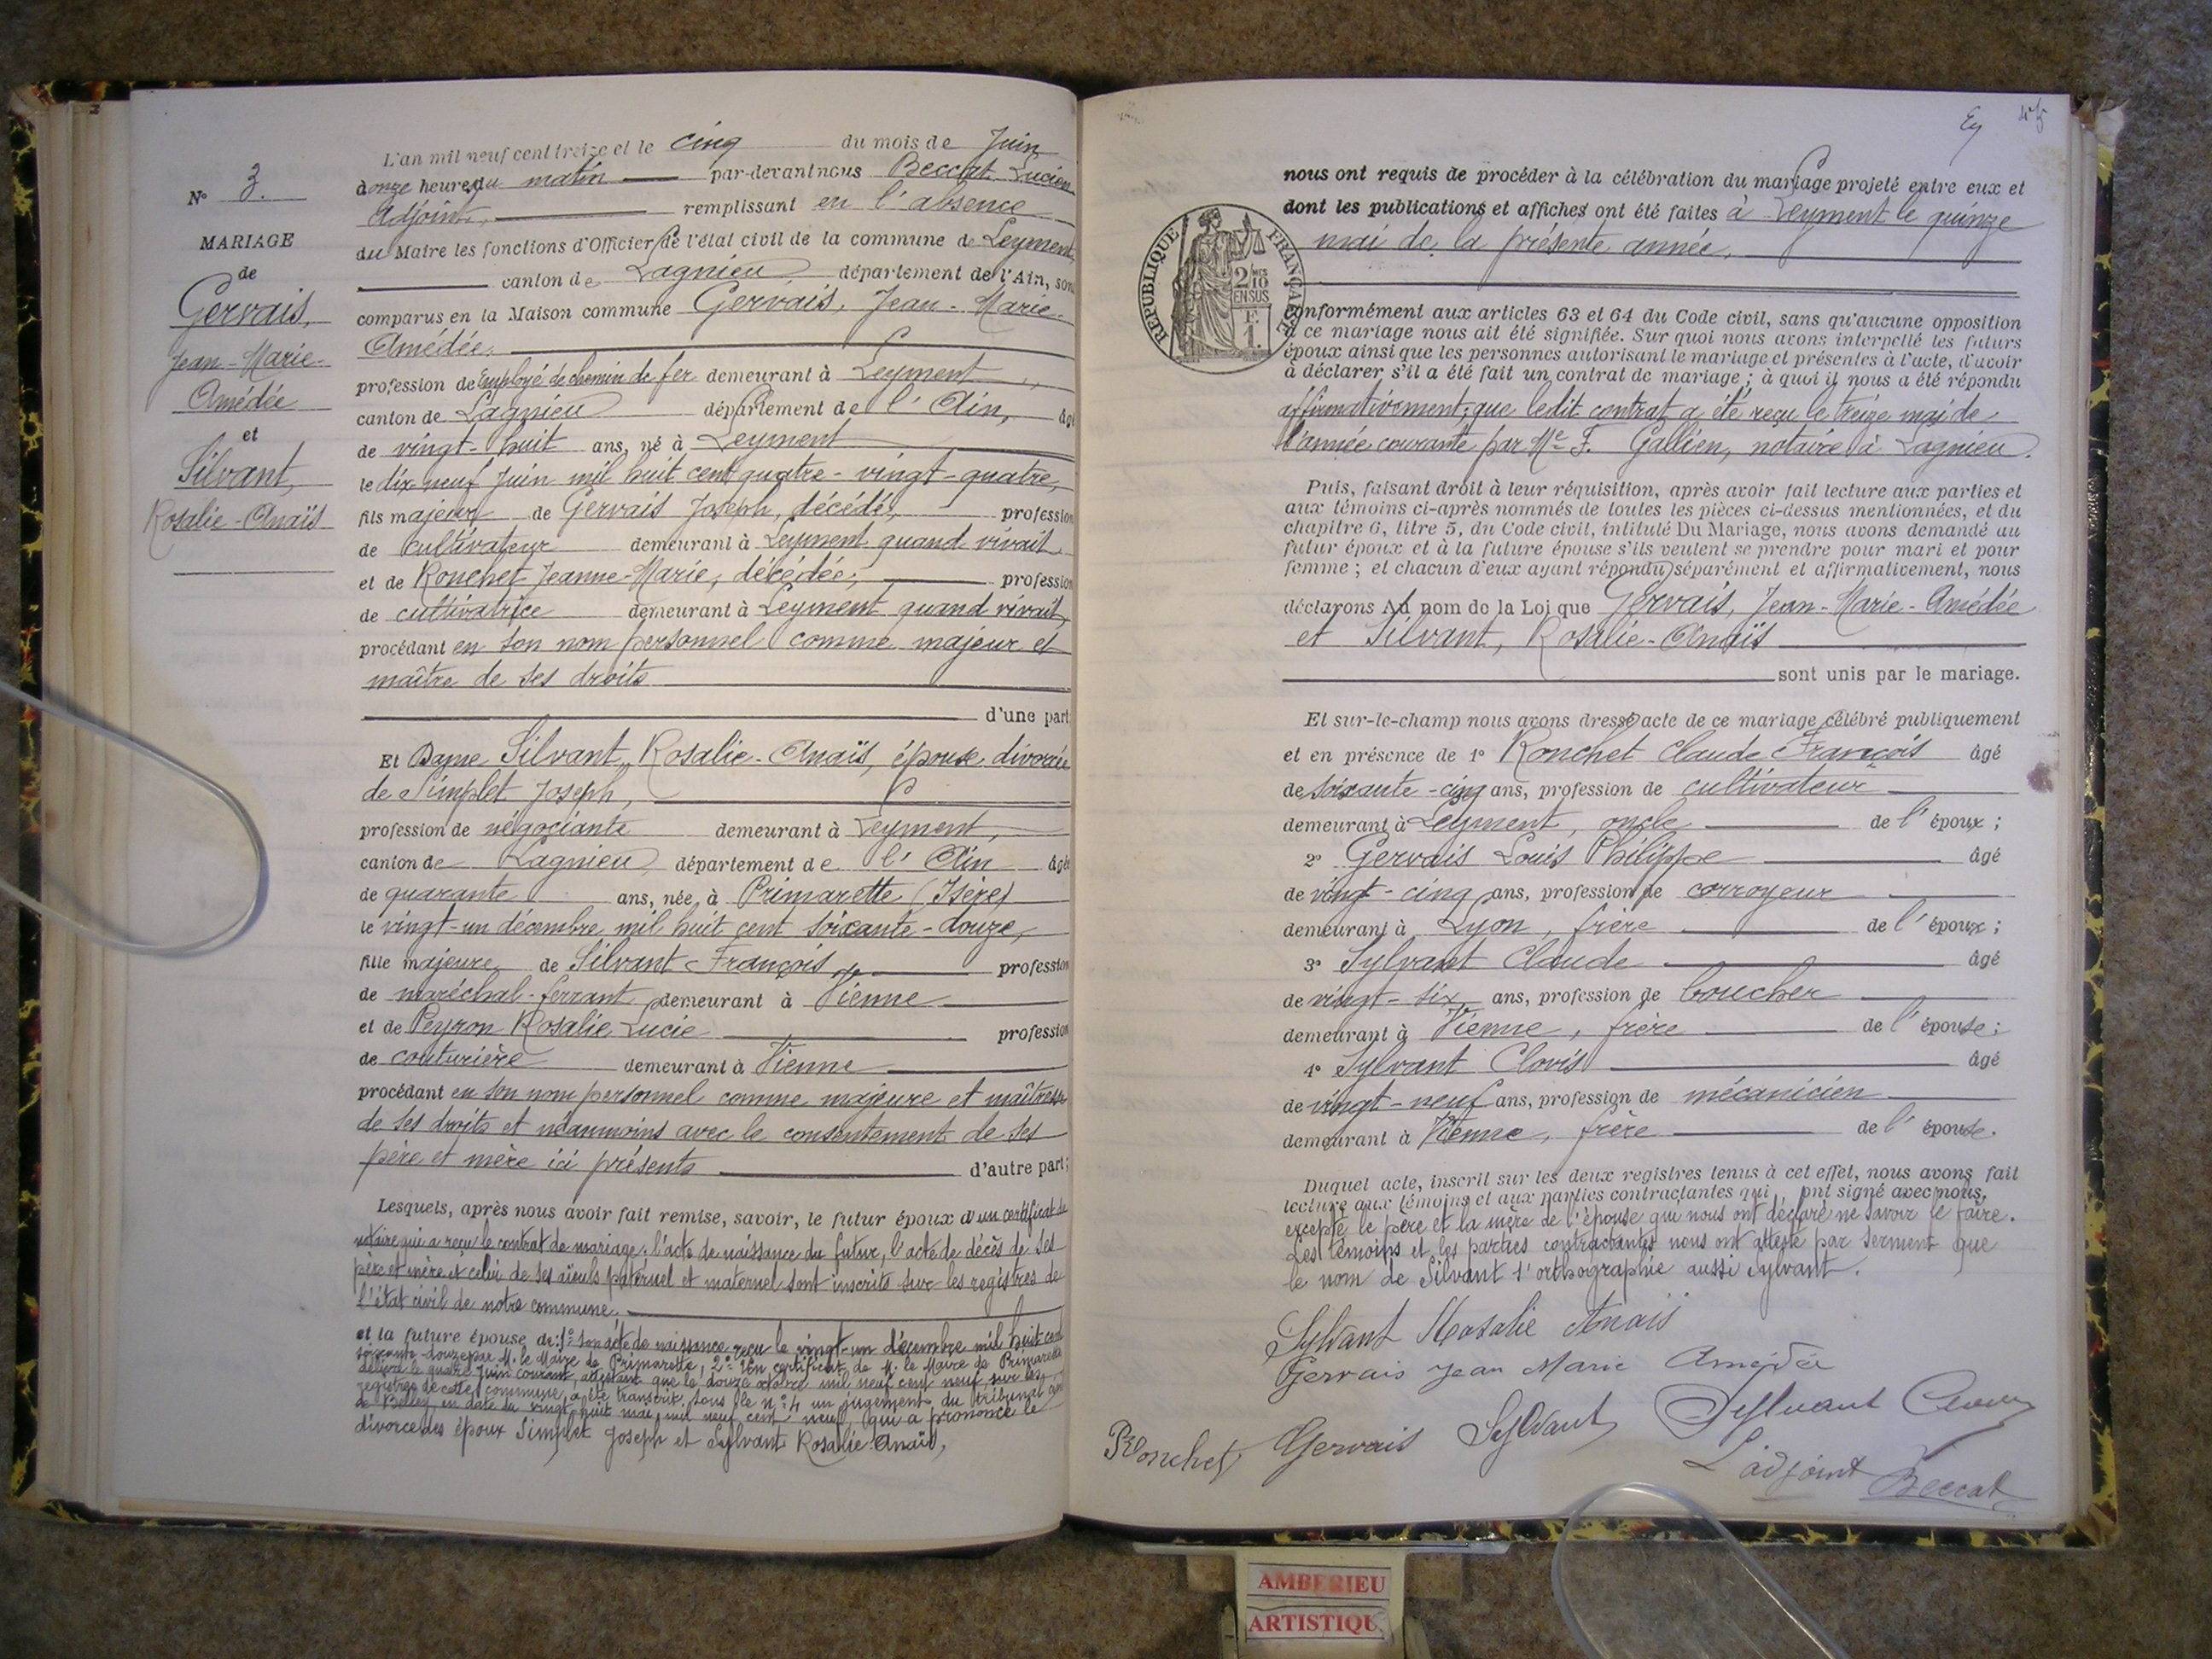 N° 3.
MARIAGE
de
Gervais,
Jean-Marie-
Amédée
et
Silvant,
Rosalie-Anaïs
L'an mil neuf cent treize et le cinq du mois de Juin
à onze heures du matin par-devant nous Beccat Lucien
Adjoint, remplissant en l'absence
du Maire les fonctions d'Officier de l'état civil de la commune de Leyment
canton de Lagnieu département de l'Ain, son
comparus en la Maison commune Gervais, Jean-Marie-
Amédée,
profession de Employé de chemin de fer demeurant à Leyment,
canton de Lagnieu département de l'Ain, âgé
de vingt-huit ans, né à Leyment
le dix-neuf Juin mil huit cent quatre-vingt-quatre,
fils majeur de Gervais Joseph, décédé, profession
de cultivateur demeurant à Leyment quand vivait
et de Ronchet Jeanne-Marie, décédée, profession
de cultivatrice demeurant à Leyment quand vivait,
procédant en son nom personnel comme majeur et
maître de ses droits
d'une part
Et Dame Silvant, Rosalie-Anaïs, épouse divorcée
de Simplet Joseph,
profession de négociante demeurant à Leyment,
canton de Lagnieu, département de l'Ain âgée
de quarante ans, née à Primarette (Isère)
le vingt-un décembre mil huit cent soixante-douze,
fille majeure de Silvant François, profession
de maréchal-ferrant demeurant à Vienne
et de Peyron Rosalie Lucie profession
de couturière demeurant à Vienne
procédant en son nom personnel comme majeure et maîtresse
de ses droits et néanmoins avec le consentement de ses
père et mère ici présents d'autre part;
Lesquels, après nous avoir fait remise, savoir, le futur époux d'un certificat du
notaire qui a reçu le contrat de mariage; l'acte de naissance du futur, l'acte de décès de ses
père et mère et celui de ses aïeuls paternel et maternel sont inscrits sur les registres de
l'état civil de notre commune.
et la future épouse de: 1° son acte de naissance reçu le vingt-un décembre mil huit cent
soixante-douze par M. le Maire de Primarette; 2° Un certificat de M. le Maire de Primarette
délivré le quatre Juin courant, attestant que le douze octobre mil neuf cent neuf, sur les
registres de cette commune, a été transcrit sous le n° 4 un jugement du tribunal civil
de Belley, en date du vingt-huit mai mil neuf cent neuf, qui a prononcé le
divorce des époux Simplet Joseph et Sylvant Rosalie Anaïs,
45
nous ont requis de procéder à la célébration du mariage projeté entre eux et
dont les publications et affiches ont été faites à Leyment le quinze
mai de la présente année.
RÉPUBLIQUE FRANÇAISE
2/10 EN SUS
F. 1.
conformément aux articles 63 et 64 du Code civil, sans qu'aucune opposition
à ce mariage nous ait été signifiée. Sur quoi nous avons interpellé les futurs
époux ainsi que les personnes autorisant le mariage et présentes à l'acte, d'avoir
à déclarer s'il a été fait un contrat de mariage; à quoi il nous a été répondu
affirmativement; que ledit contrat a été reçu le treize mai de
l'année courante par Me F. Gallien, notaire à Lagnieu.
Puis, faisant droit à leur réquisition, après avoir fait lecture aux parties et
aux témoins ci-après nommés de toutes les pièces ci-dessus mentionnées, et du
chapitre 6, titre 5, du Code civil, intitulé Du Mariage, nous avons demandé au
futur époux et à la future épouse s'ils veulent se prendre pour mari et pour
femme; et chacun d'eux ayant répondu séparément et affirmativement, nous
déclarons Au nom de la Loi que Gervais, Jean-Marie-Amédée
et Silvant, Rosalie-Anaïs
sont unis par le mariage.
Et sur-le-champ nous avons dressé acte de ce mariage célébré publiquement
et en présence de 1° Ronchet Claude François âgé
de soixante-cinq ans, profession de cultivateur
demeurant à Leyment, oncle de l'époux;
2° Gervais Louis Philippe âgé
de vingt-cinq ans, profession de corroyeur
demeurant à Lyon, frère de l'époux;
3° Sylvant Claude âgé
de vingt-six ans, profession de boucher
demeurant à Vienne, frère de l'épouse;
4° Sylvant Clovis âgé
de vingt-neuf ans, profession de mécanicien
demeurant à Vienne, frère de l'épouse.
Duquel acte, inscrit sur les deux registres tenus à cet effet, nous avons fait
lecture aux témoins et aux parties contractantes qui, ont signé avec nous,
excepté le père et la mère de l'épouse qui nous ont déclaré ne savoir le faire.
Les témoins et les parties contractantes nous ont attesté par serment que
le nom de Silvant s'orthographie aussi Sylvant.
Sylvant Rosalie Anaïs
Gervais Jean Marie Amédée
Ronchet Gervais Sylvant Sylvant
L'adjoint Beccat
AMBERIEU
ARTISTIQU